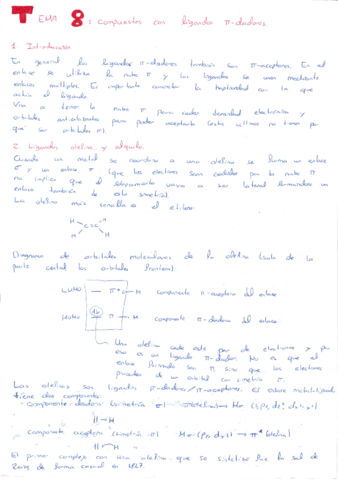 TEMA 8: Compuestos con ligandos π-dadores
1. Introducción
En general los ligandos π-dadores también son π-aceptores. En el
enlace se utiliza la nube π y los ligandos se unen mediante
enlaces múltiples. Es importante conocer la hapticidad con la que
actúa el ligando.
Van a tener la nube π para ceder densidad electrónica y
orbitales antienlazantes para poder aceptarla (estos últimos no tienen por
qué ser orbitales π).
2. Ligandos olefina y alquilo.
Cuando un metal se coordina a una olefina se forma un enlace
σ y un enlace π (que los electrones sean cedidos por la nube π
no implica que el solapamiento vaya a ser lateral formándose un
enlace también de esta simetría).
La olefina más sencilla es el etileno:
H H
C=C
H H
Diagrama de orbitales moleculares de la olefina (solo de la
parte central los orbitales frontera):
LUMO π* ← M componente π-aceptora del enlace
HOMO π → M componente π-dadora del enlace
Una olefina cede este par de electrones y por
eso es un ligando π-dador. No es que el
enlace formado sea π sino que los electrones
proceden de un orbital con simetría π.
Las olefinas son ligandos π-dadores/π-aceptores. El enlace metal-ligando
tiene dos componentes:
- Componente dadora (simetría σ)
- Componente aceptora (simetría π)
El primer complejo con una olefina que se sintetizó fue la sal de
Zeise de forma casual en 1827.